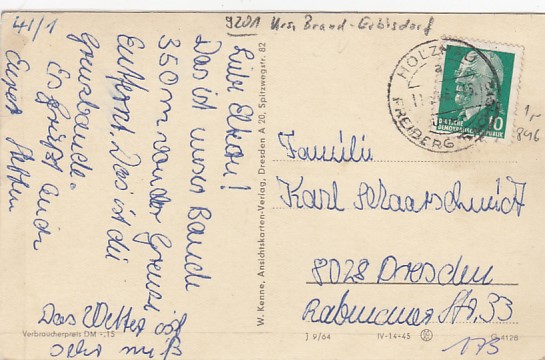 41/1
9201 Krs. Brand-Erbisdorf
Liebe Eltern!
Das ist unser Baude
350 m von der Grenze
entfernt. Das ist die
Grenzbaude.
Es grüßt euch
Euer
Das Wetter
ist
sehr mies
W. Kenne, Ansichtskarten-Verlag, Dresden A 20, Spitzwegstr. 82
HOLZHAU
FREIBERG
10
DEUTSCHE
DEMOKRATISCHE REPUBLIK
1,-
896
Familie
Karl Schaarschmidt
8028 Dresden
Rabenauer Str. 33
Verbraucherpreis DM -,15
J 9/64
IV-14-45
4128
175